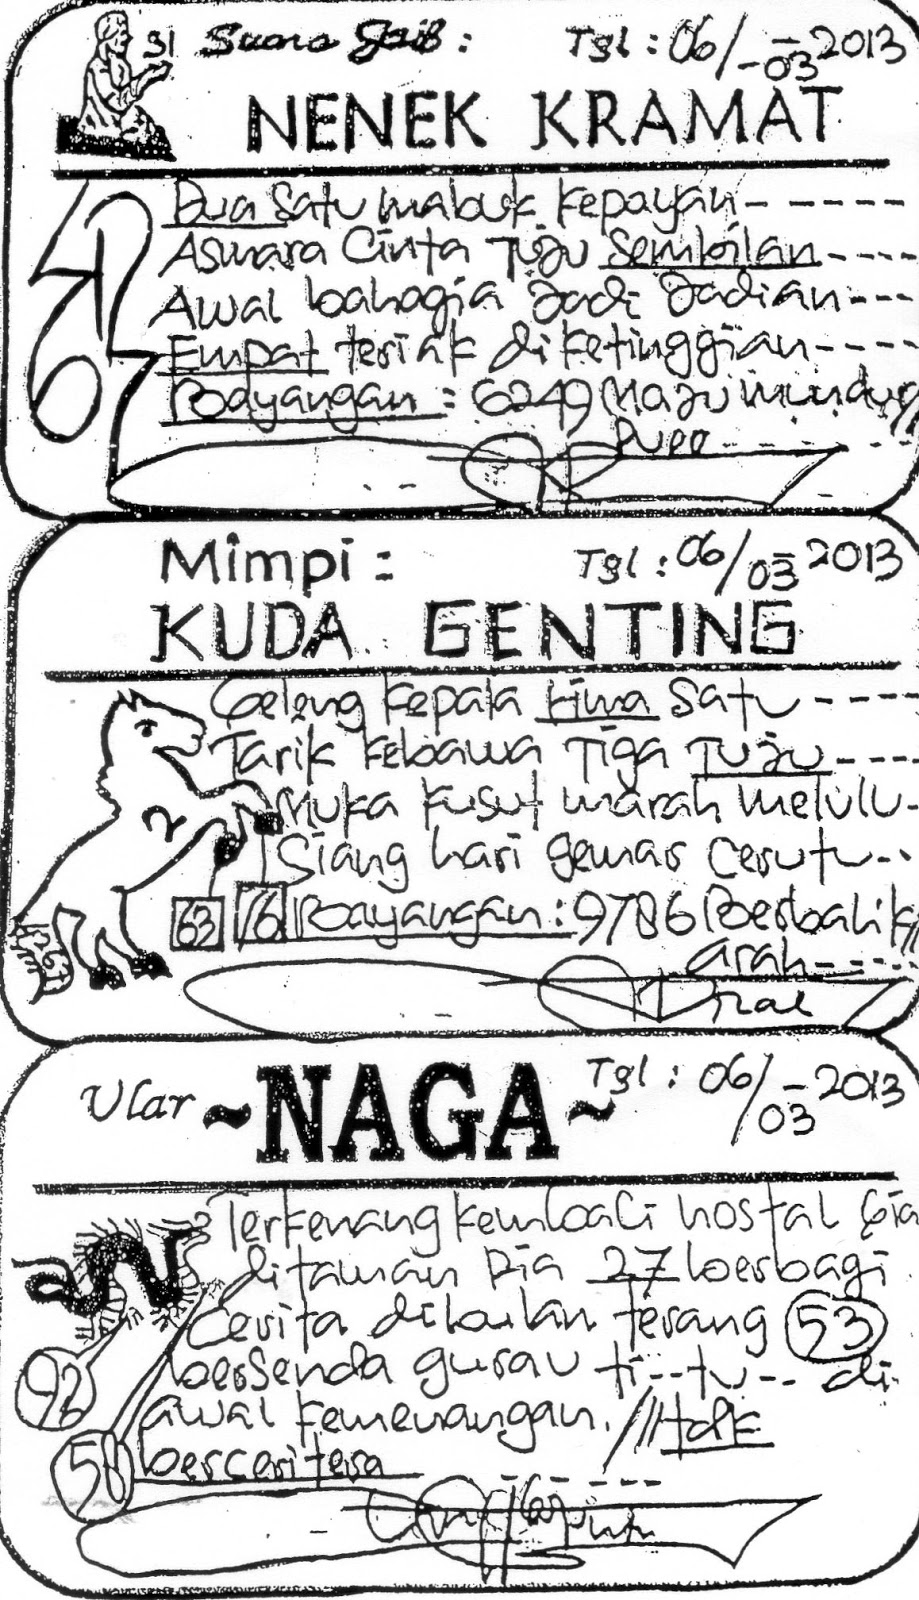 31 Suara Gaib : Tgl : 06/-03-2013
NENEK KRAMAT
Dua satu mabuk kepayan-----
Asmara Cinta Tuju Sembilan----
Awal bahagia Jadi Jadian---
Empat teriak di ketinggian----
Bayangan : 6249 Maju mundur
Mimpi : Tgl : 06/03-2013
KUDA GENTING
Geleng kepala Lima Satu----
Tarik kebawa Tiga Tuju----
2
Muka kusut marah melulu-
Siang hari gemar cerutu--
63 76 Bayangan : 9786 Berbalik
arah----
Ular ~NAGA~ Tgl : 06/03-2013
Terkenang kembali nostal gia
ditaman Ria 27 berbagi
Cerita dibulan terang 53
92 bersenda gurau ti--tu-- di
awal kemenangan. //Htdk
58 berceritera